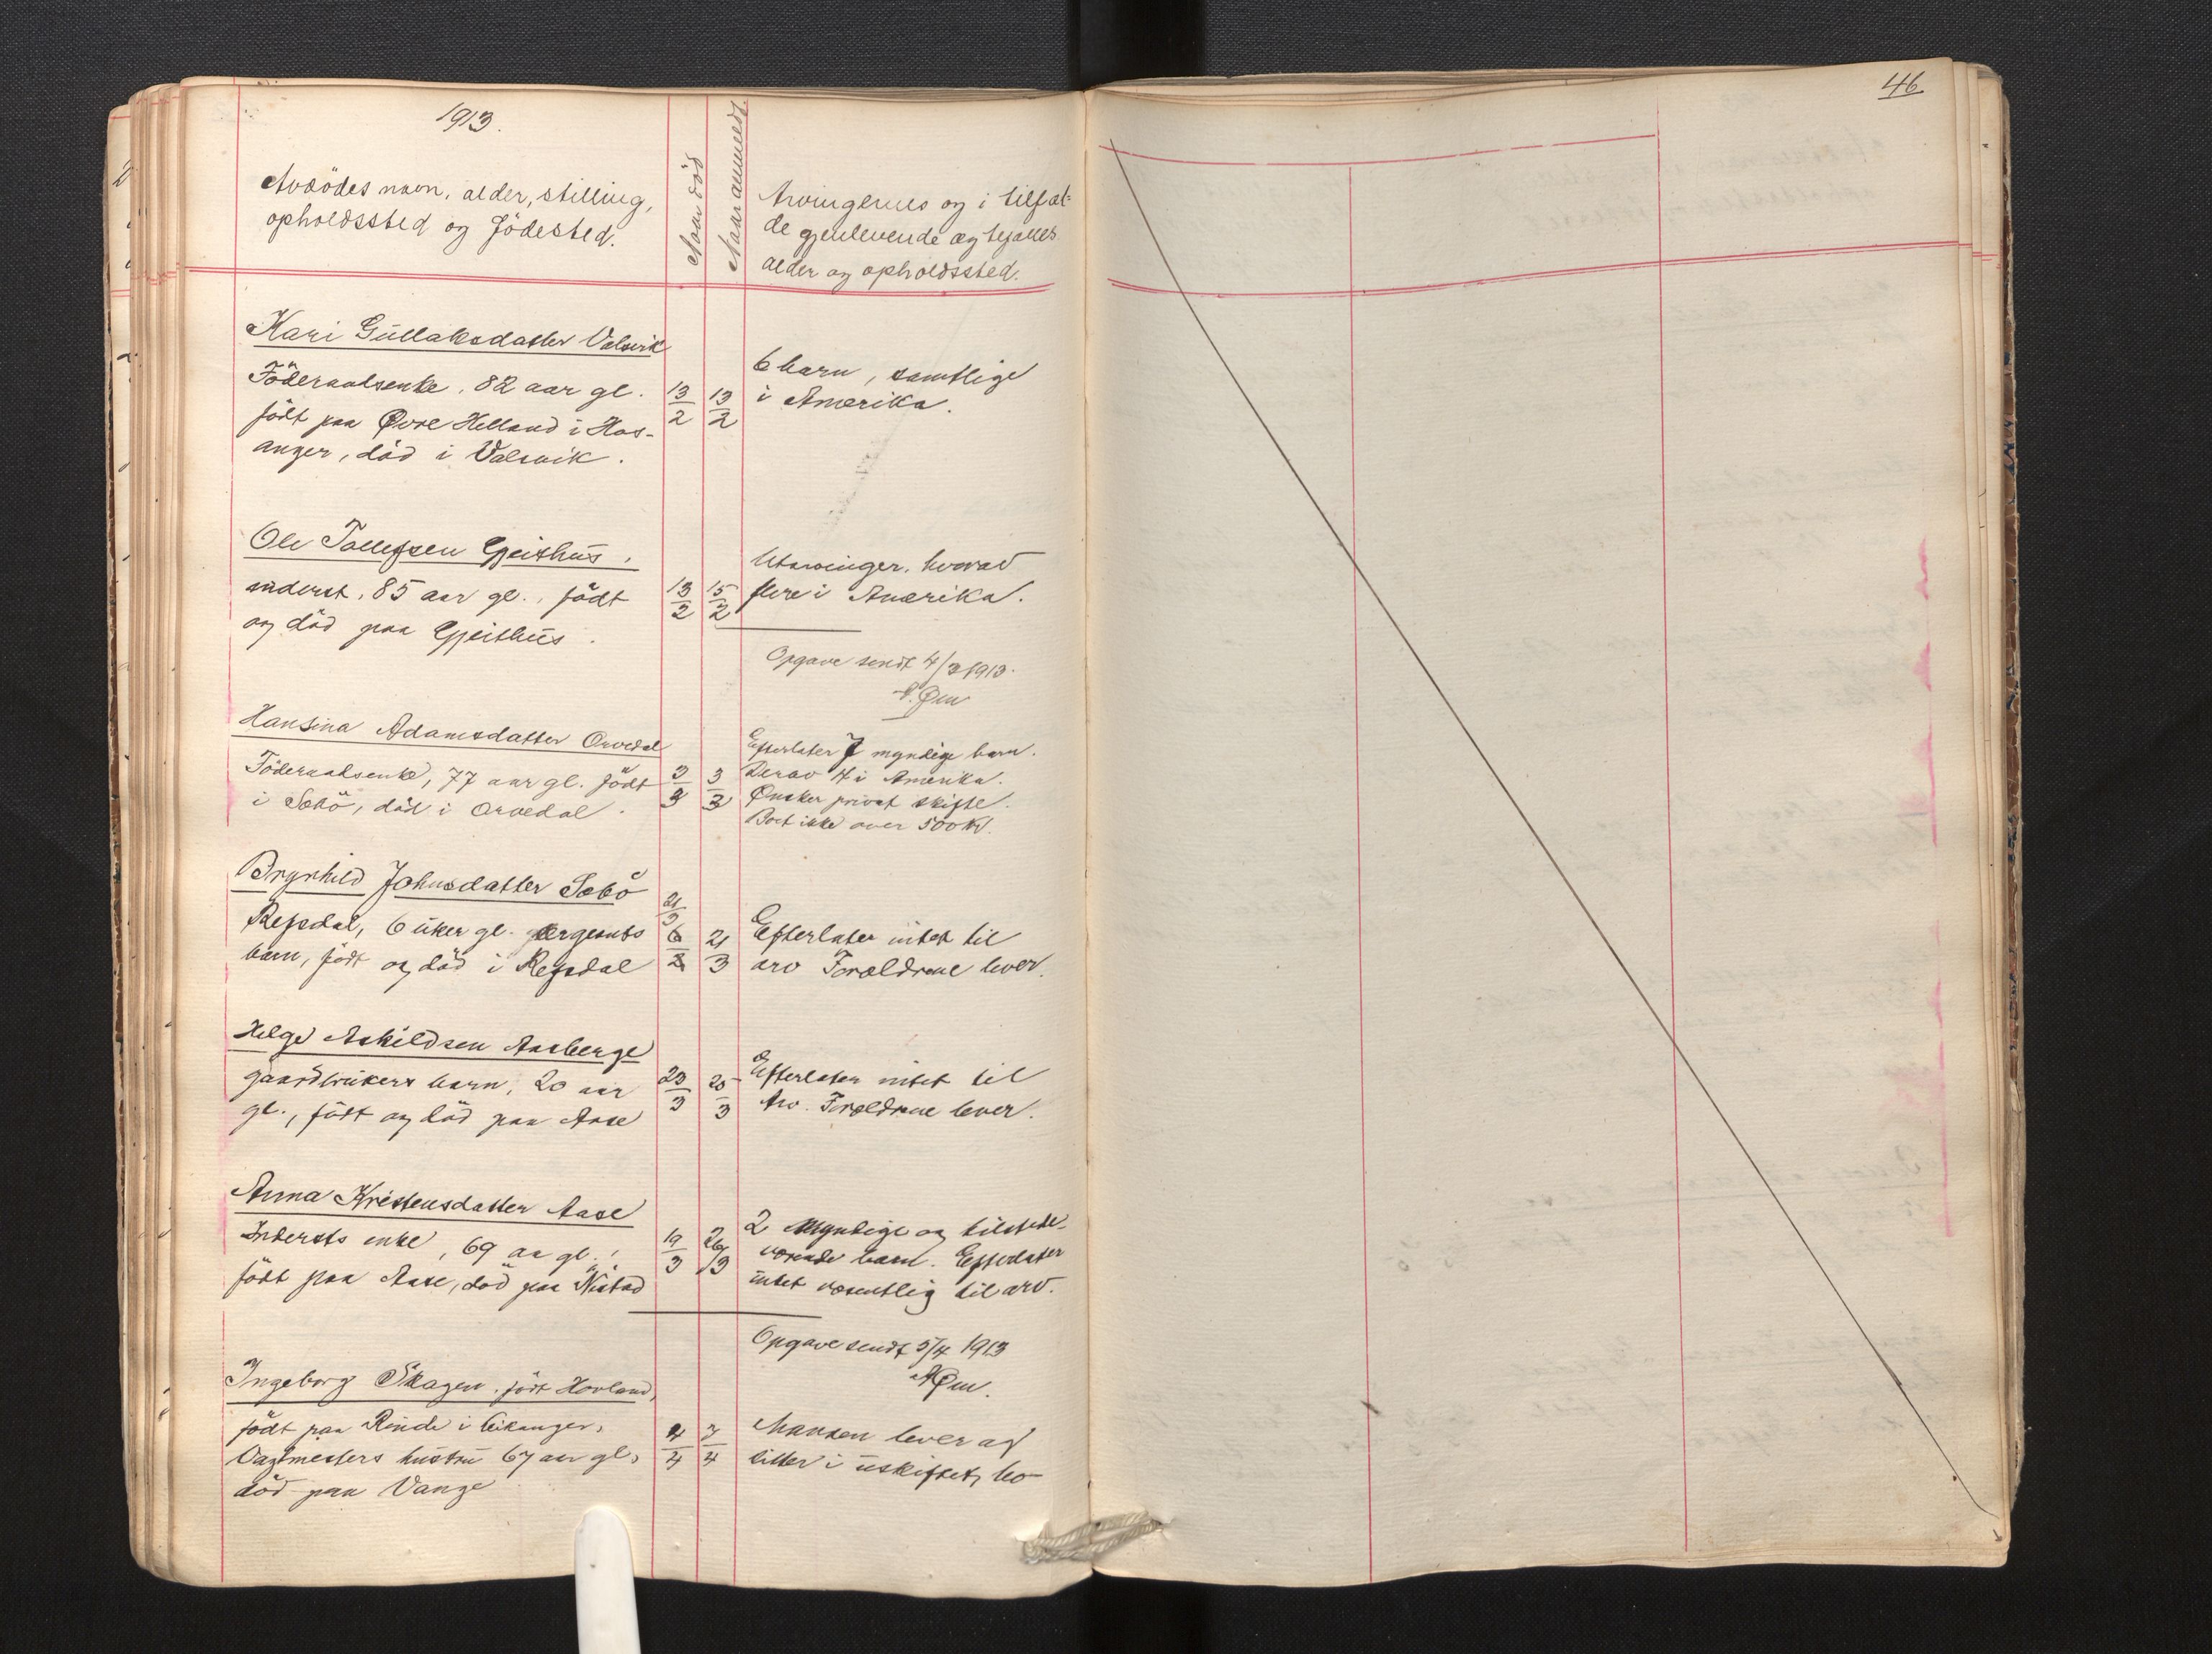 46
1913.
Avdödes navn, alder, stilling,
opholdssted og födested.
Naar död
Naar anmeldt.
Arvingernes og i tilfæl-
de gjenlevende ægtefælles
alder og opholdssted.
Kari Gullaksdatter Valsvik
Föderaadsenke. 82 aar gl.
födt paa Øvre Helland i Hos-
anger, död i Valsvik.
13/2
13/2
6 barn, samtlige
i Amerika.
Ole Tollefsen Gjeithus.
inderst. 85 aar gl., födt
og död paa Gjeithus.
13/2
15/2
Utarvinger. hvorav
flere i Amerika.
Opgave sendt 4/3 1913.
Øen
Hansina Adamsdatter Orvedal
Föderaadsenke, 77 aar gl. födt
i Sæbö, död i Orvedal.
3/3
3/3
Efterlater 7 myndige barn.
Derav 4 i Amerika.
Ønsker privat skifte.
Boet ikke over 500 kr.
Brynhild Johnsdatter Sæbö
Refsdal, 6 uker gl.
barn, födt og död i Refsdal
21/3
6/2
21/3
Efterlater intet til
arv Forældrene lever.
Helge Askildsen Aasberge
gaardbrukers barn, 20 aar
gl., födt og död paa Aase
23/3
25/3
Efterlater intet til
Arv. Forældrene lever.
Anna Kristensdatter Aase
Indersts enke, 69 aa gl.,
födt paa Aase, död paa Nistad
19/3
26/3
2 Myndige og tilstede-
værende barn. Efterlater
intet væsentlig til arv.
Opgave sendt 5/4 1913
Øen.
Ingeborg Skagen. födt Hovland,
födt paa Rinde i Leikanger,
Vagtmesters hustru 67 aar gl.,
död paa Vange
4/4
7/4
Manden lever og
sitter i uskiftet bo